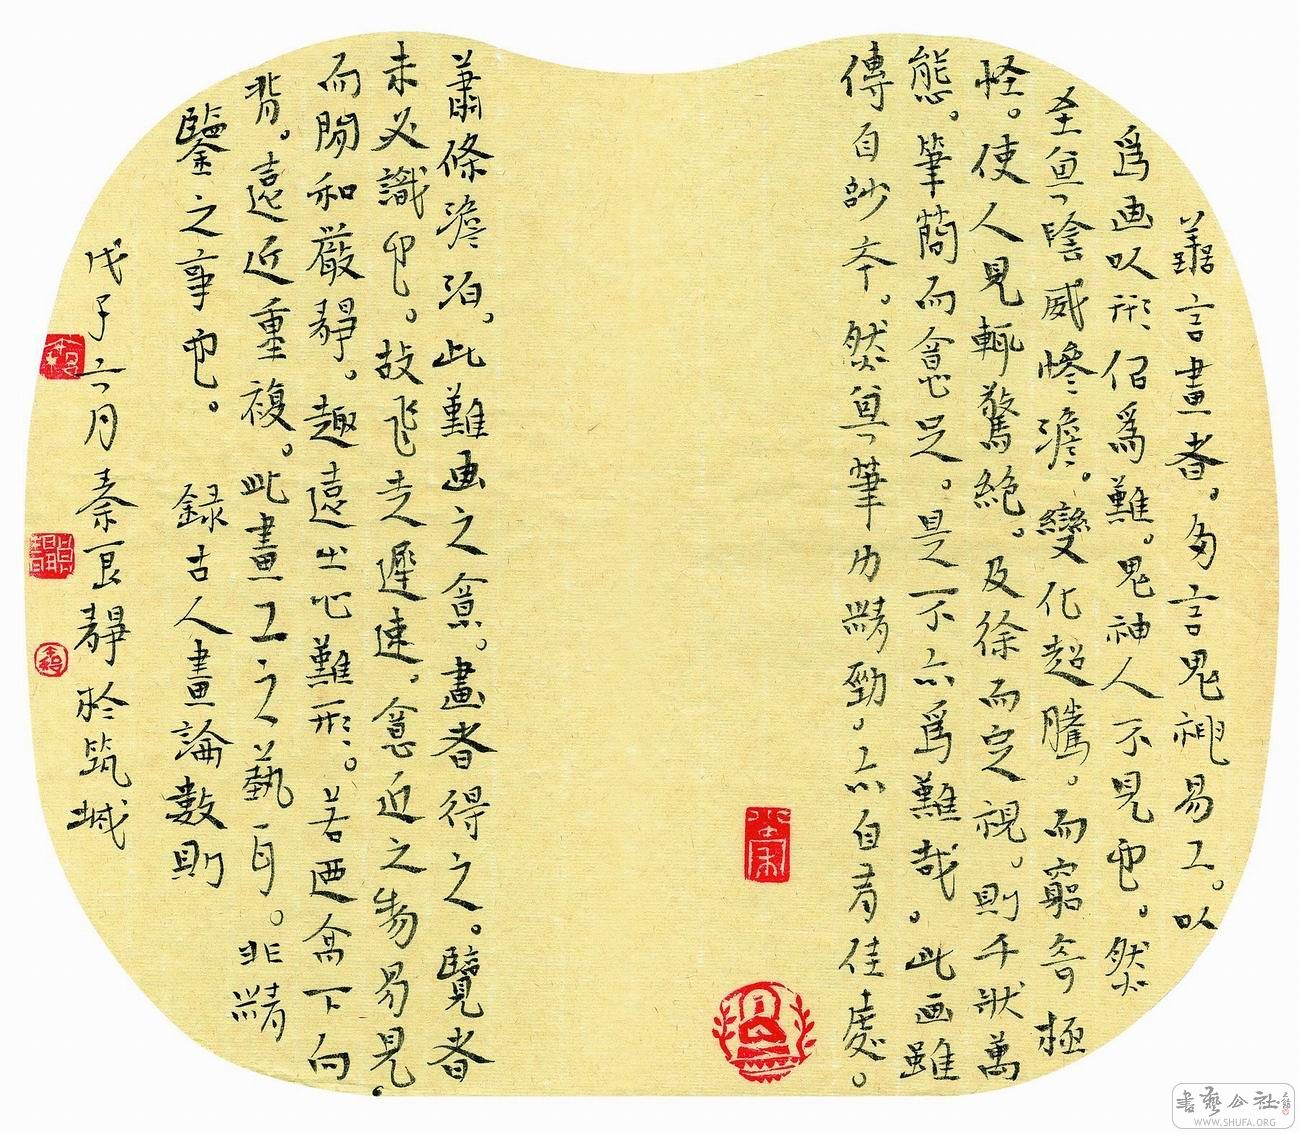 善言畫者。多言鬼神易工。以
爲画以形侣爲難。鬼神人不見也。然
至其陰威慘澹。變化超騰。而窮奇極
怪。使人見輒驚絶。及徐而定視。則千狀萬
態。筆簡而意足。是不亦爲難哉。此画雖
傳自妙本。然其筆力精勁。亦自有佳處。
蕭條澹泊。此難画之意。畫者得之。覽者
未必識也。故飛走遲速。意近之物易見。
而閒和嚴靜。趣遠之心難形。若迺高下向
背。遠近重複。此畫工之藝耳。非精
鑒之事也。 録古人畫論數則
戊子六月秦艮靜於筑城
書藝公社
WWW.SHUFA.ORG